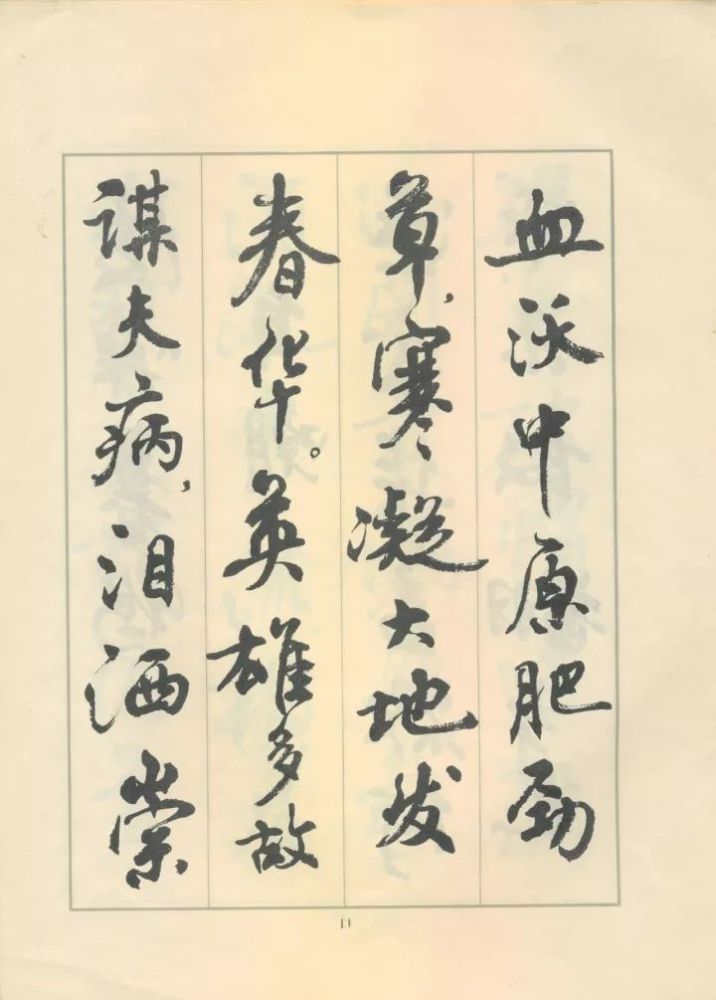 血沃中原肥劲
草，寒凝大地发
春华。英雄多故
谋夫病，泪洒崇
11